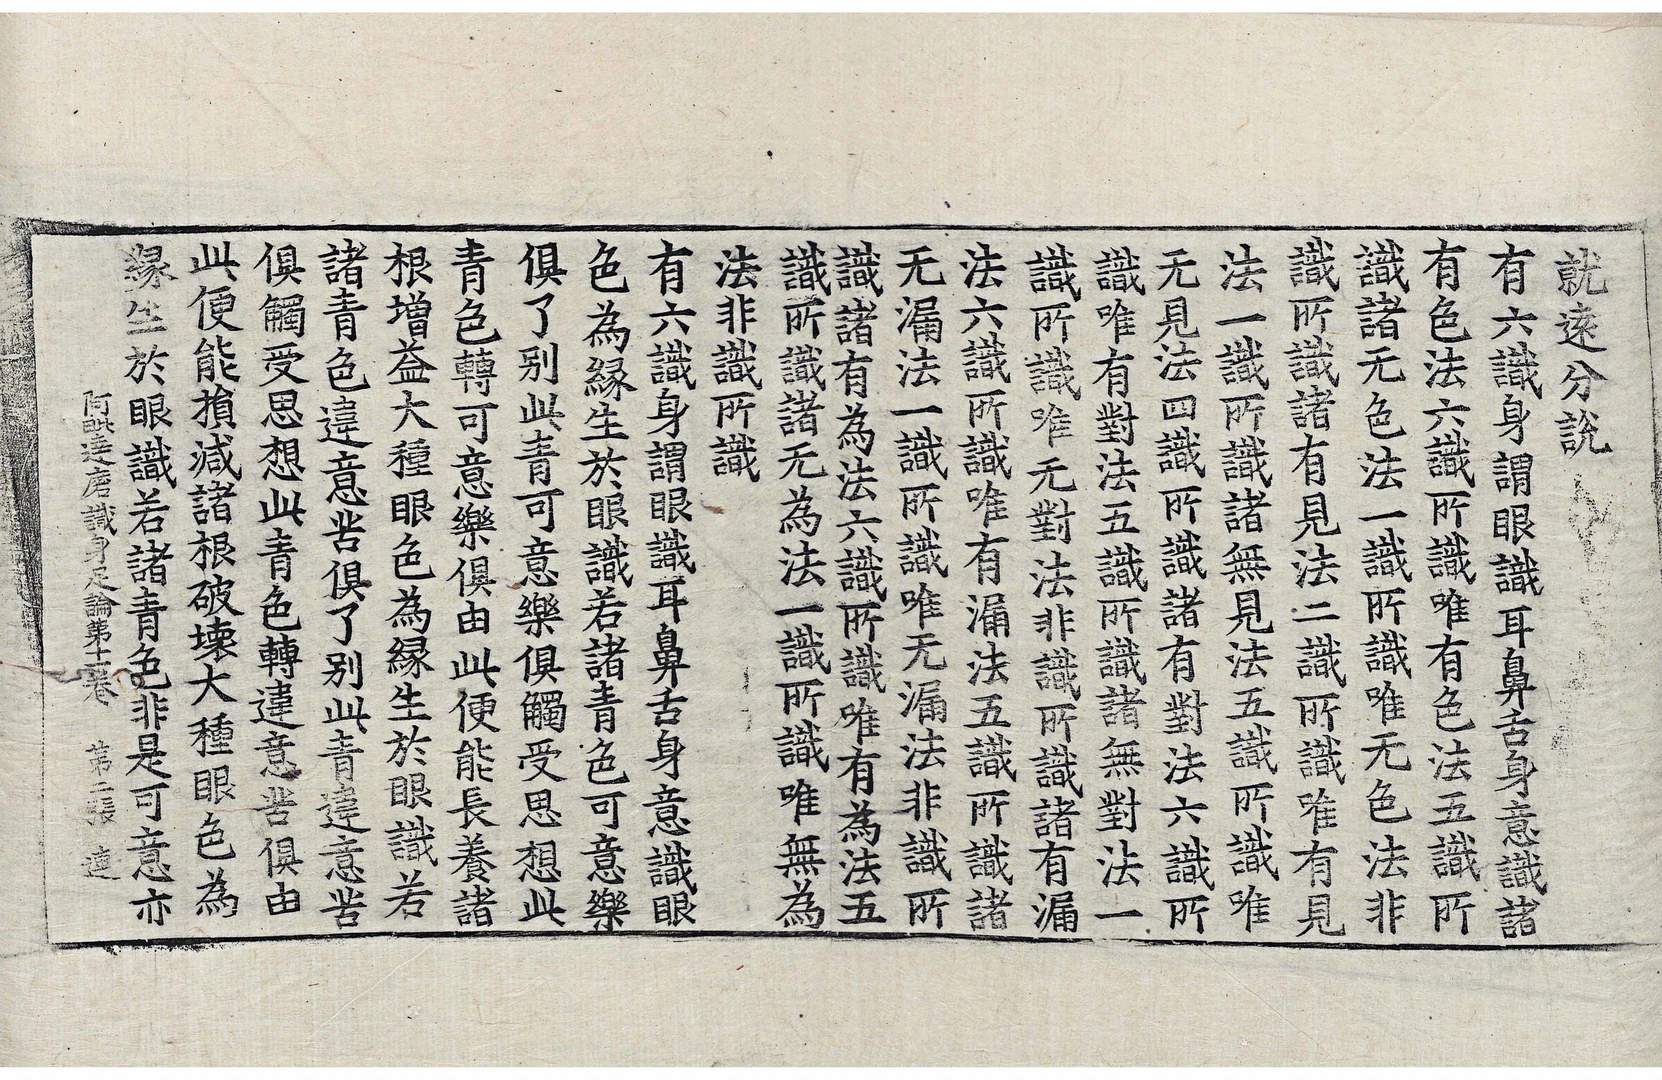 就遠分說
有六識身謂眼識耳鼻舌身意識諸
有色法六識所識唯有色法五識所
識諸无色法一識所識唯无色法非
識所識諸有見法二識所識唯有見
法一識所識諸無見法五識所識唯
无見法四識所識諸有對法六識所
識唯有對法五識所識諸無對法一
識所識唯无對法非識所識諸有漏
法六識所識唯有漏法五識所識諸
无漏法一識所識唯无漏法非識所
識諸有為法六識所識唯有為法五
識所識諸无為法一識所識唯無為
法非識所識
有六識身謂眼識耳鼻舌身意識眼
色為緣生於眼識若諸青色可意樂
俱了別此青可意樂俱觸受思想此
青色轉可意樂俱由此便能長養諸
根增益大種眼色為緣生於眼識若
諸青色違意苦俱了別此青違意苦
俱觸受思想此青色轉違意苦俱由
此便能損減諸根破壞大種眼色為
緣生於眼識若諸青色非是可意亦
阿毗達磨識身足論第十一卷 第二張 連